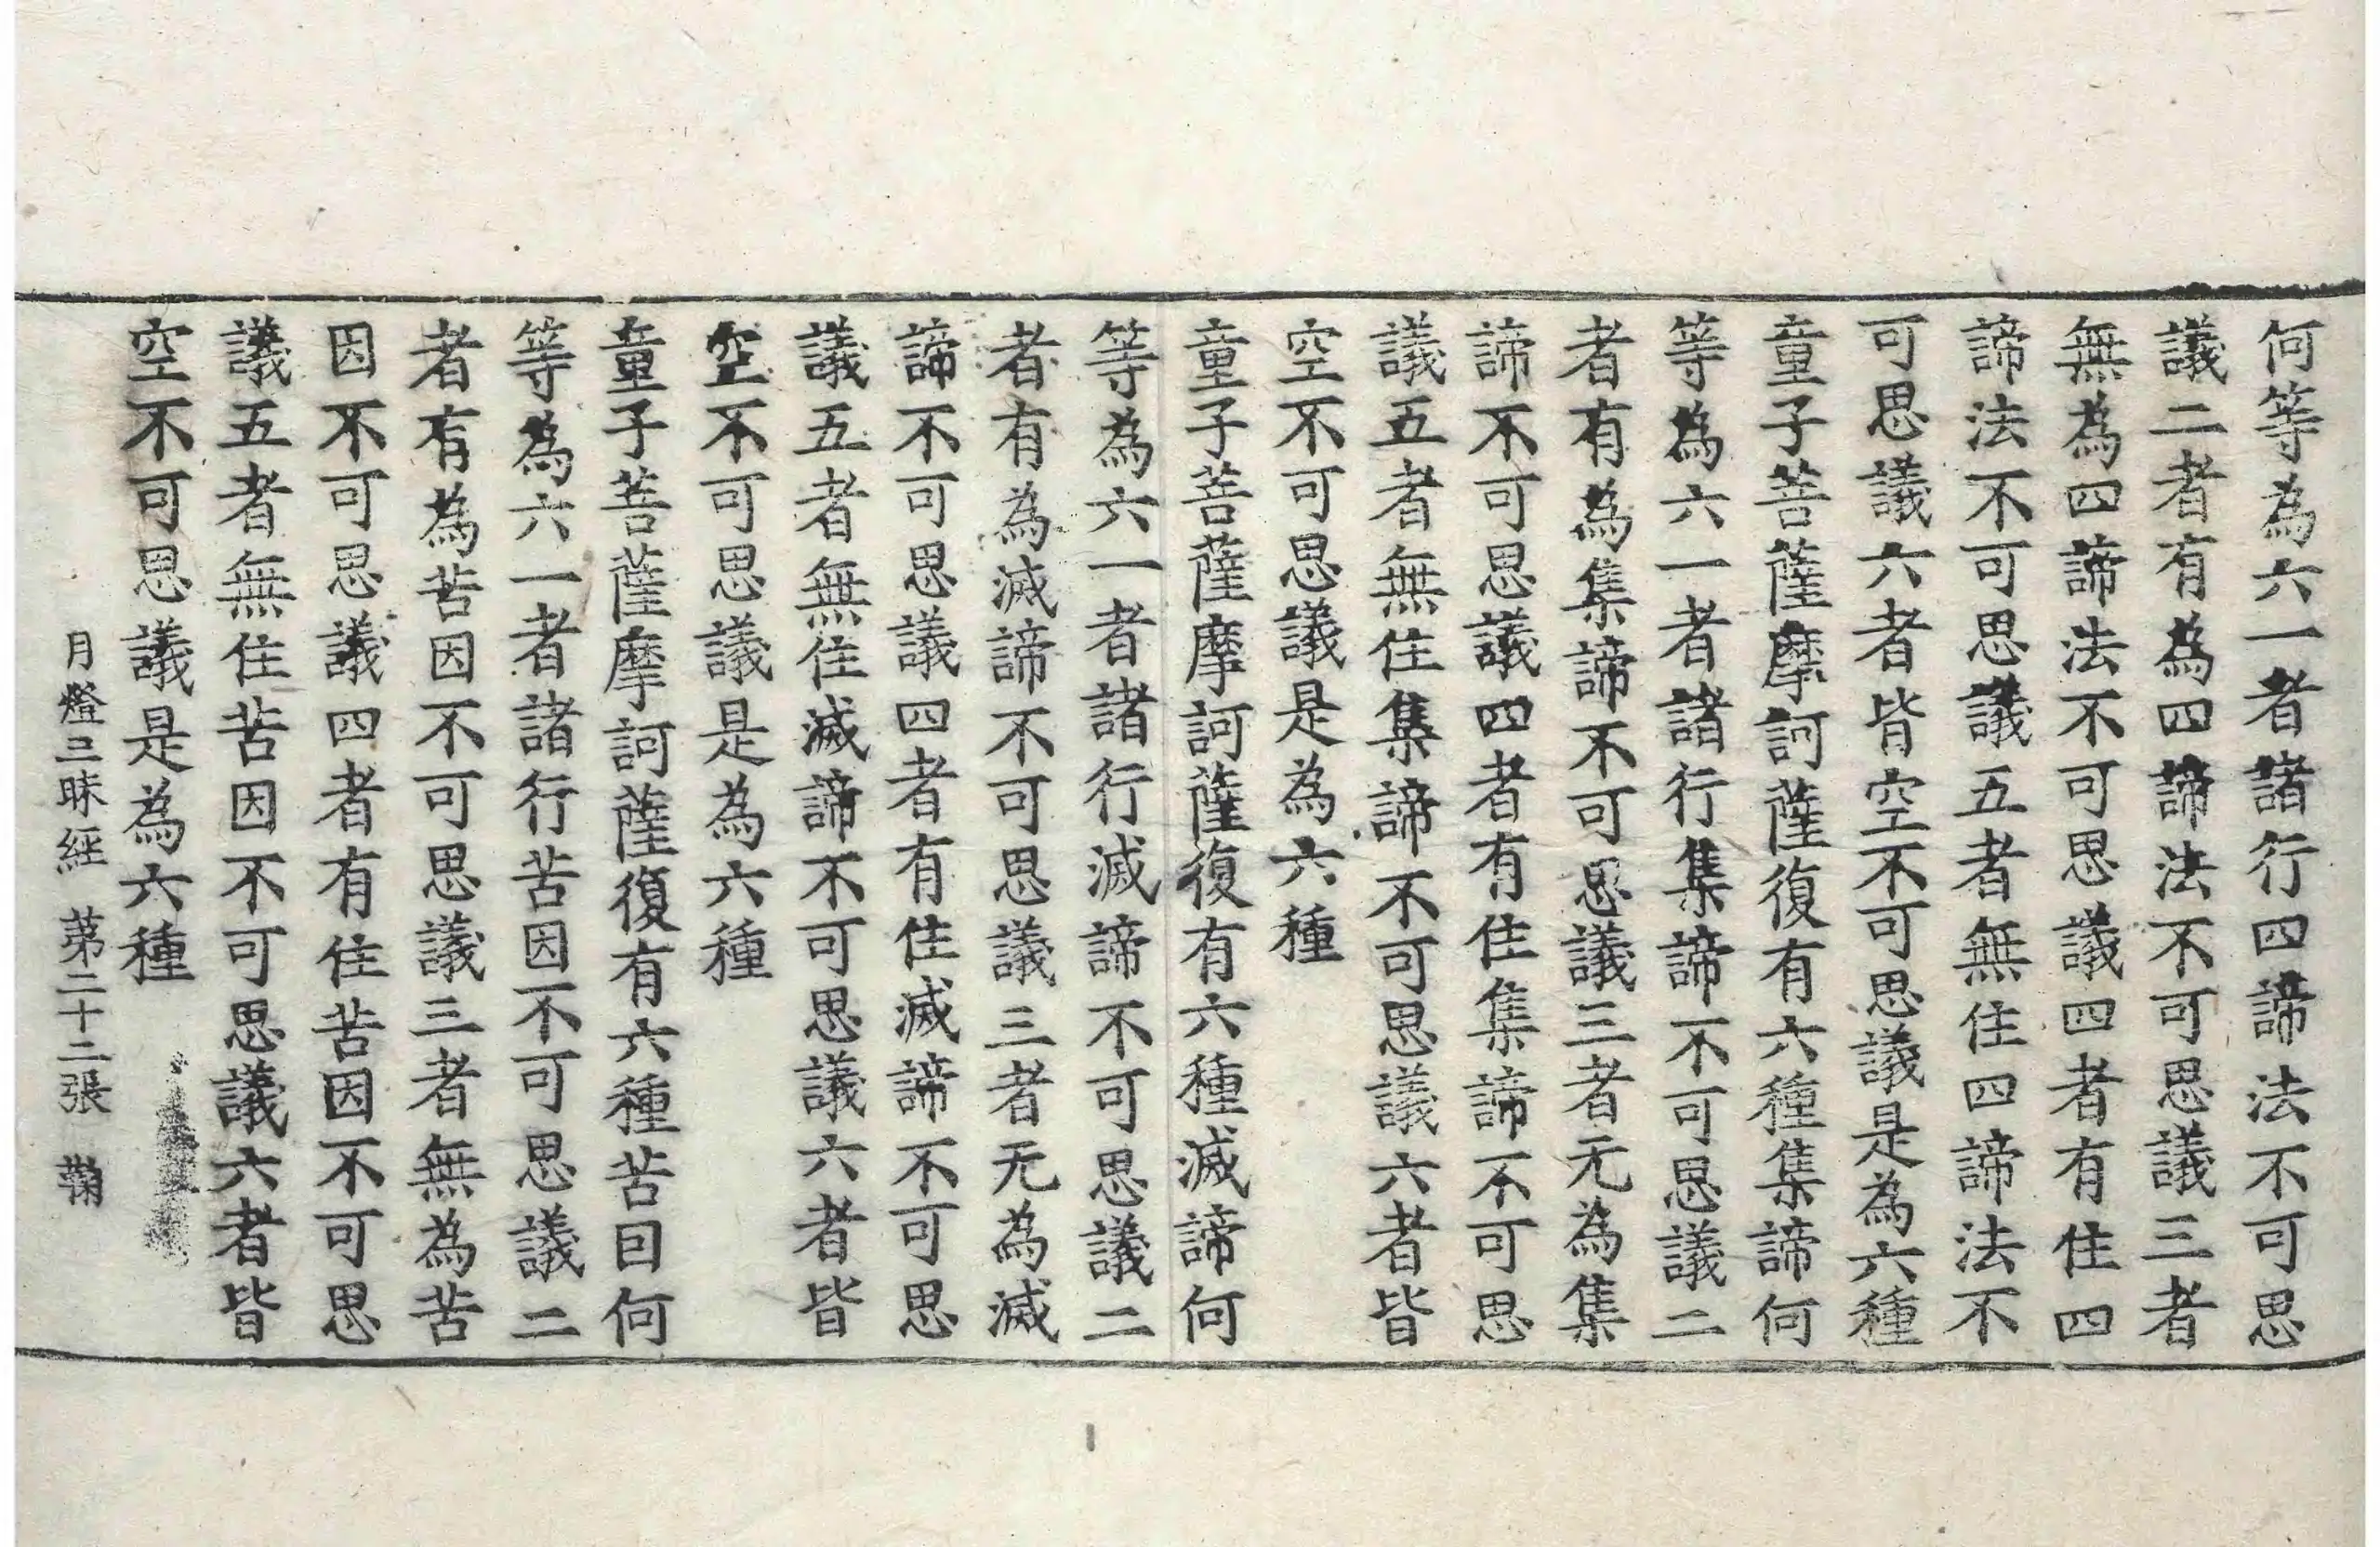 何等為六一者諸行四諦法不可思
議二者有為四諦法不可思議三者
無為四諦法不可思議四者有住四
諦法不可思議五者無住四諦法不
可思議六者皆空不可思議是為六種
童子菩薩摩訶薩復有六種集諦何
等為六一者諸行集諦不可思議二
者有為集諦不可思議三者无為集
諦不可思議四者有住集諦不可思
議五者無住集諦不可思議六者皆
空不可思議是為六種
童子菩薩摩訶薩復有六種滅諦何
等為六一者諸行滅諦不可思議二
者有為滅諦不可思議三者无為滅
諦不可思議四者有住滅諦不可思
議五者無住滅諦不可思議六者皆
空不可思議是為六種
童子菩薩摩訶薩復有六種苦因何
等為六一者諸行苦因不可思議二
者有為苦因不可思議三者無為苦
因不可思議四者有住苦因不可思
議五者無住苦因不可思議六者皆
空不可思議是為六種
月燈三昧經 第二十二張